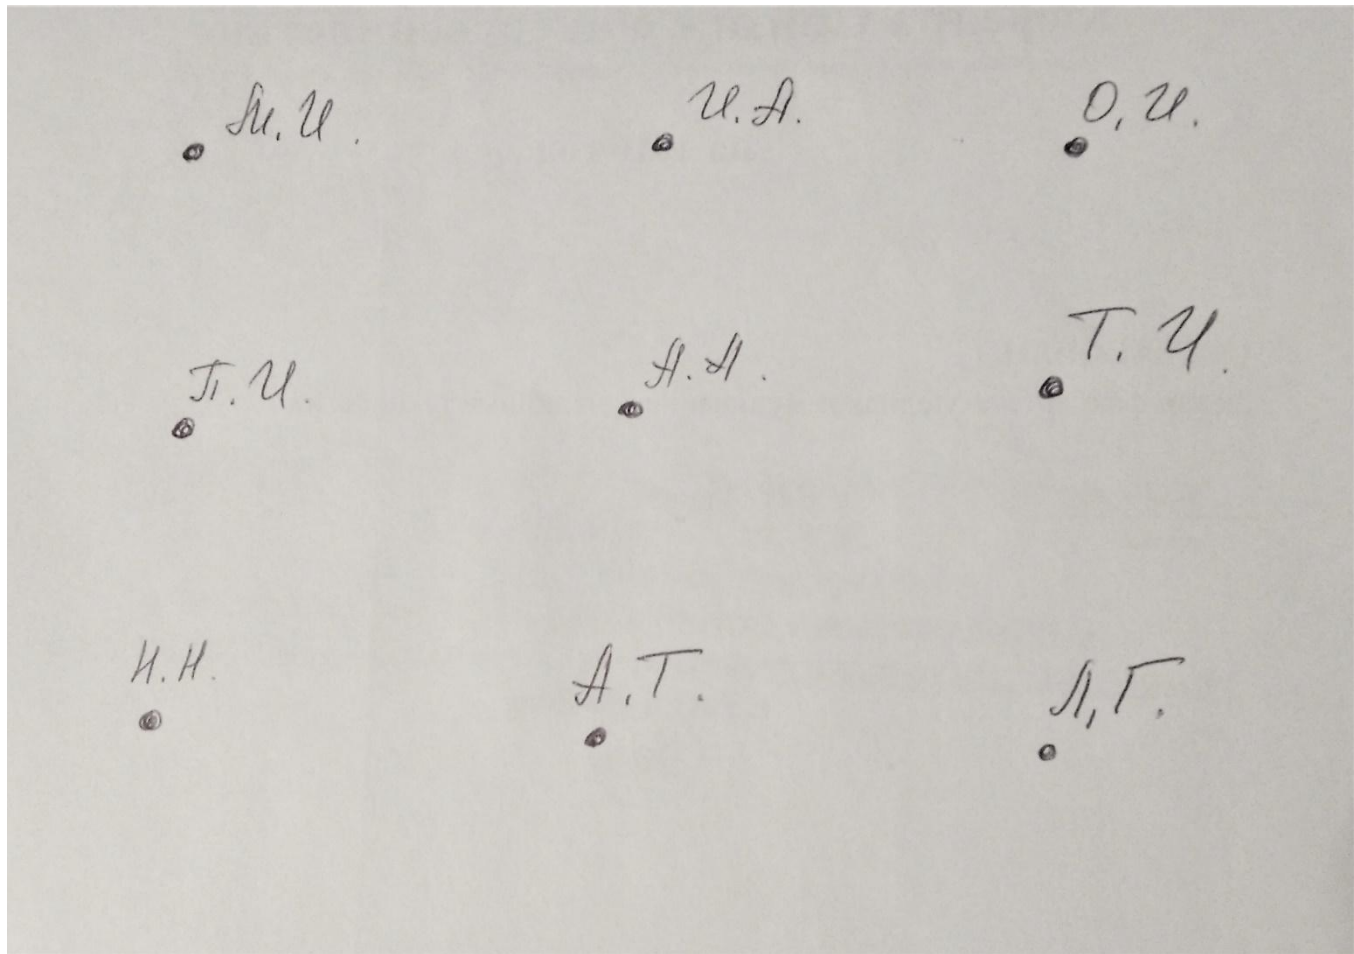 М.И. И.А. О,И.
П.И. А.А. Т.И.
Н.Н. А.Т. Л,Г.